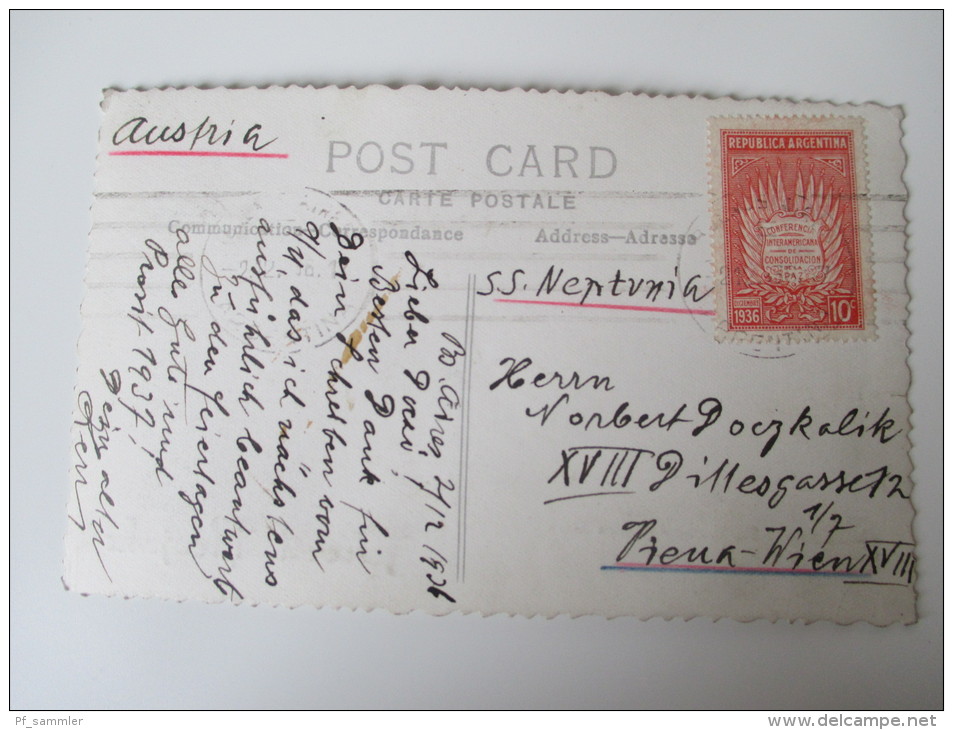 Austria
POST CARD
CARTE POSTALE
Communication-Correspondance
Address-Adresse
REPUBLICA ARGENTINA
CONFERENCIA
INTERAMERICANA
DE
CONSOLIDACION
DE LA
PAZ
DICIEMBRE
1936
10c
S.S. Neptunia
Herrn
Norbert Doczkalik
XVIII Dillesgasse 12
1/7
Viena-Wien XVIII
B. Aires, 2/12 1936
Lieber Doczi,
Besten Dank für
Dein Schreiben vom
9/ das ich nächstens
ausführlich beantwort
Zu den Feiertagen
alles Gute und
Prosit 1937,
Dein alter
Pf_sammler
http://www.delcampe.net